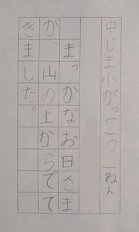 中じま小がっこう 一ねん
まっかなお日さま
が、山の上からでて
きました。